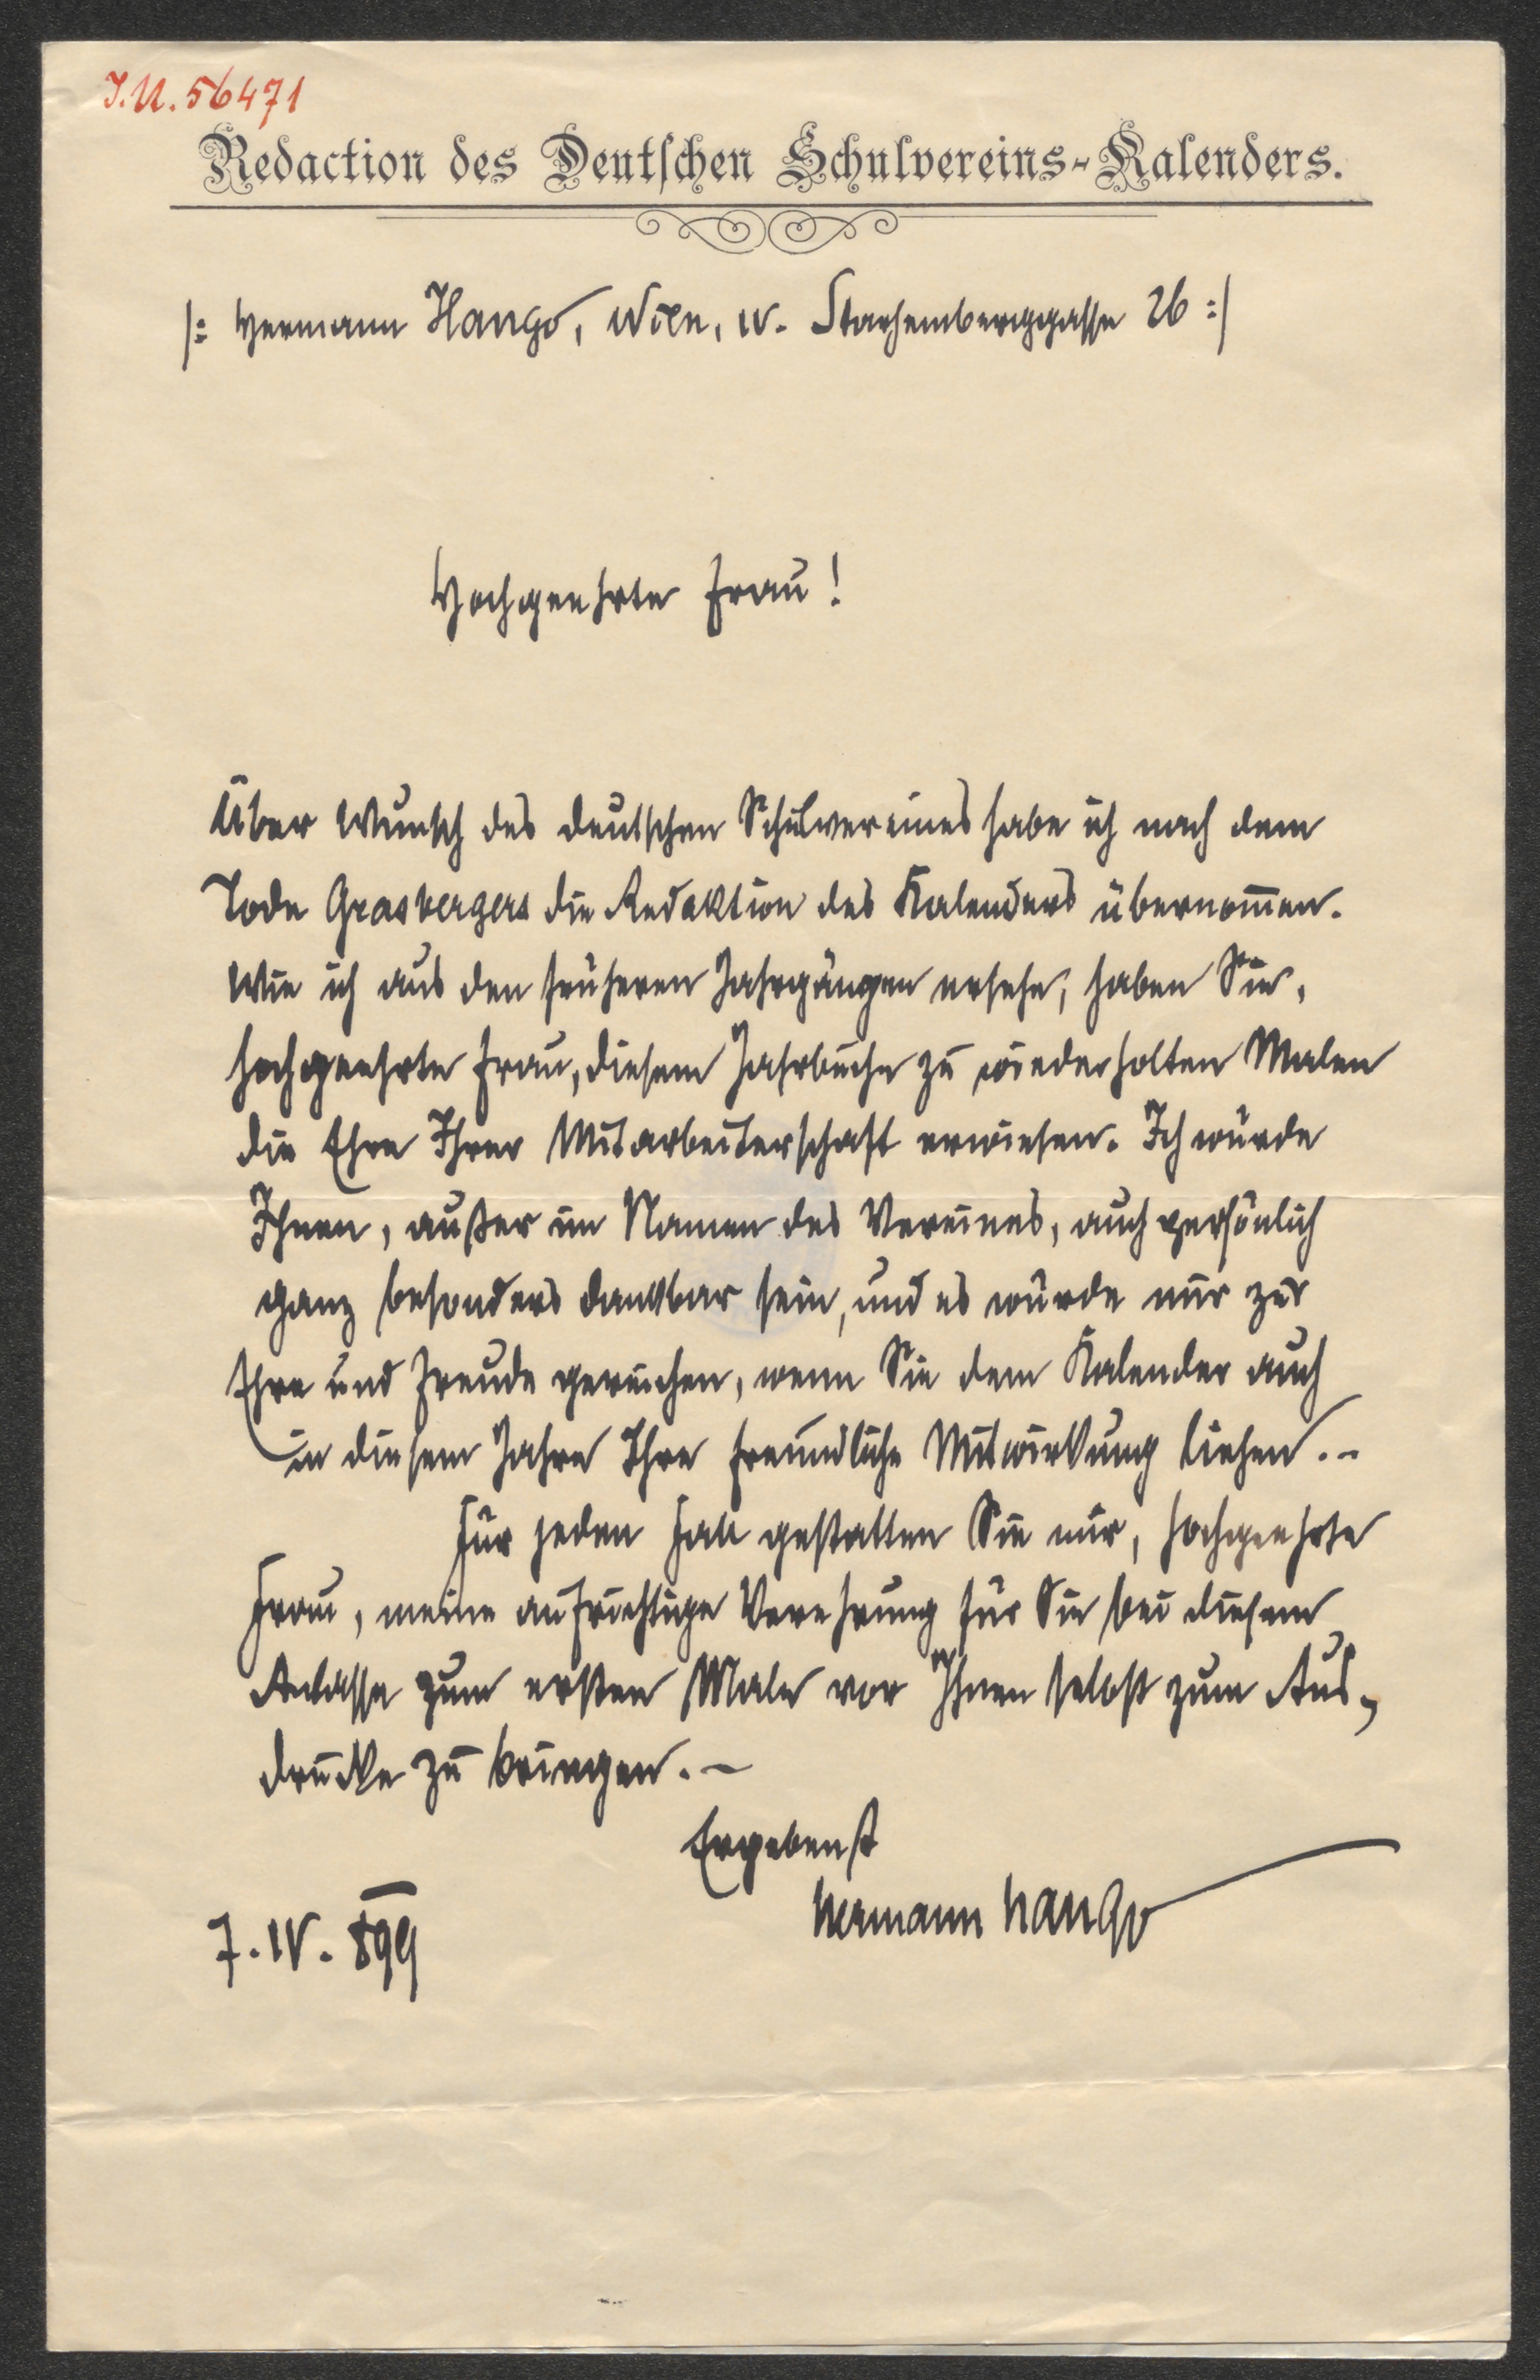 J.N. 56471
Redaction des Deutschen Schulvereins-Kalenders.
/: Hermann Hango, Wien, IV. Starhemberggasse 26 :/
Hochgeehrte Frau!
Über Wunsch des deutschen Schulvereines habe ich nach dem
Tode Grasbergers die Redaktion des Kalenders übernom̅en.
Wie ich aus den früheren Jahrgängen ersehe, haben Sie,
hochgeehrte Frau, diesem Jahrbuche zu wiederholten Malen
die Ehre Ihrer Mitarbeiterschaft erwiesen. Ich würde
Ihnen, außer im Namen des Vereines, auch persönlich
ganz besonders dankbar sein, und es würde mir zur
Ehre und Freude gereichen, wenn Sie dem Kalender auch
in diesem Jahre Ihre freundliche Mitwirkung liehen. –
Für jeden Fall gestatten Sie mir, hochgeehrte
Frau, meine aufrichtige Verehrung für Sie bei diesem
Anlasse zum ersten Male vor Ihnen selbst zum Aus-
drucke zu bringen. –
Ergebenst
Hermann Hango
7. IV. 899